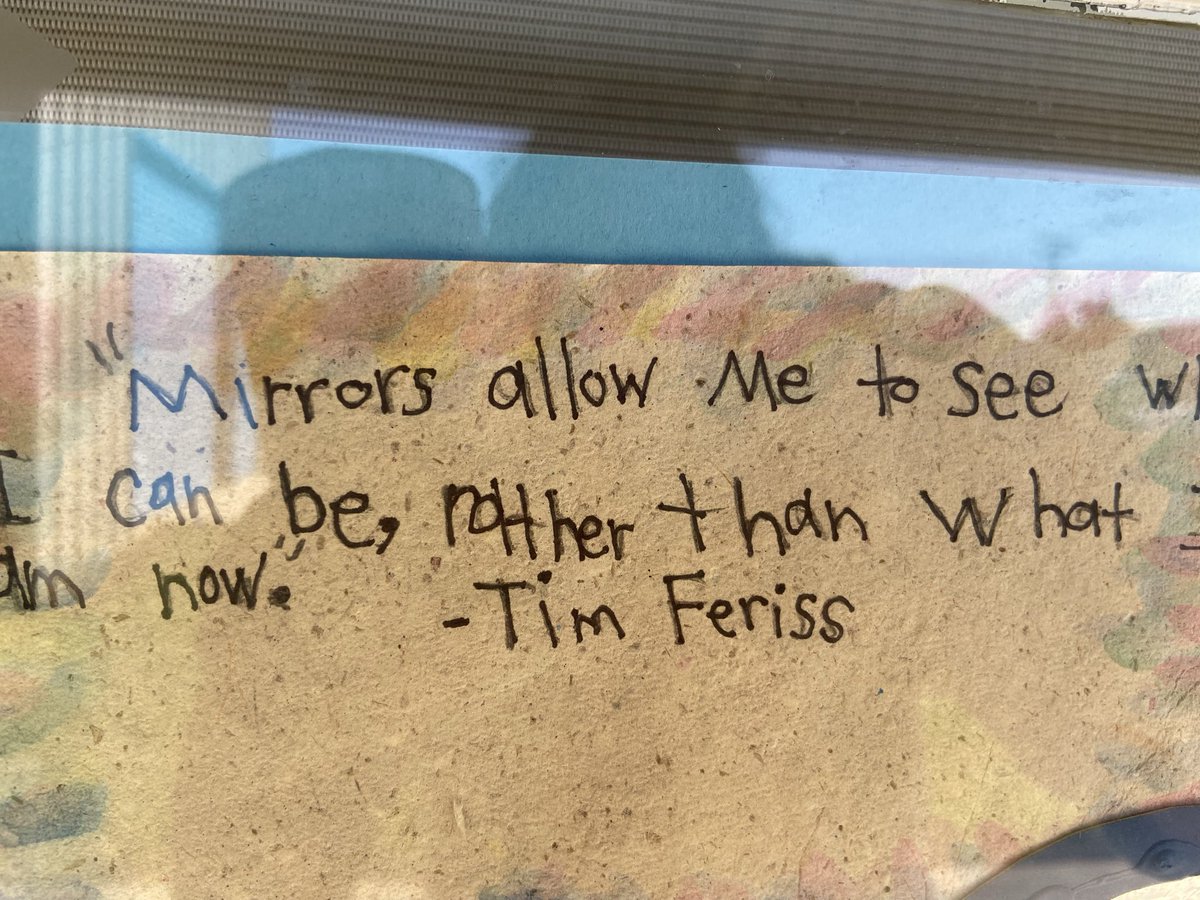 "Mirrors allow Me to see
I can be, rather than what I
am now."
-Tim Feriss